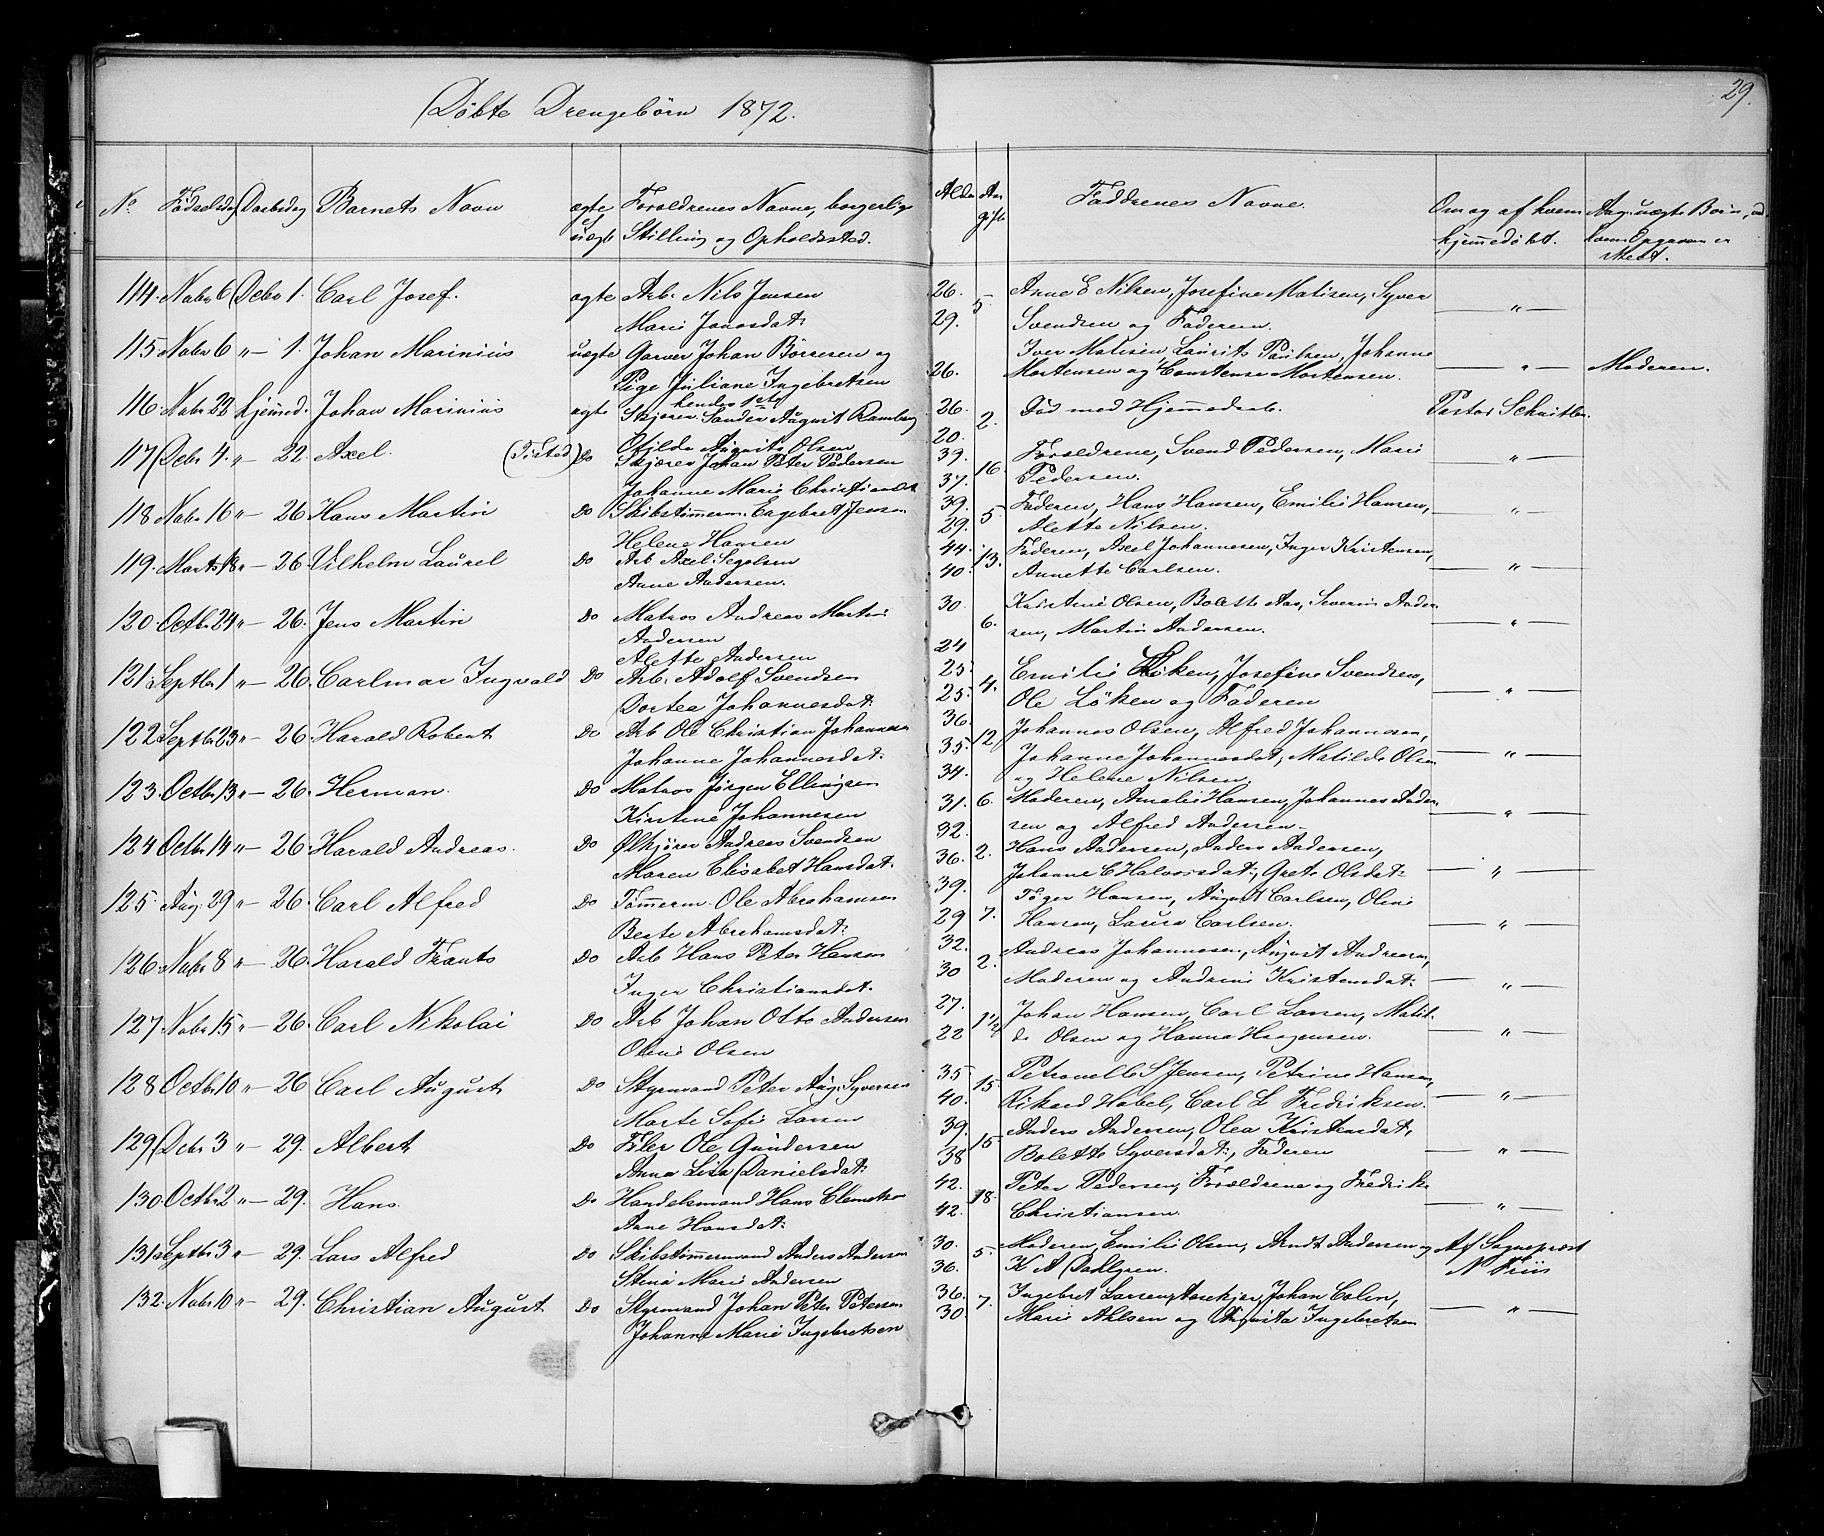 Døbte Drengebörn 1872.
29.
No Fødselsdag Daabsdag Barnets Navn ægte uægte Forældrenes Navne, borgerlige Stilling og Opholdssted. Alder Aar gifte Faddrenes Navne. Om og af hvem hjemmedøbt. Ang. uægte Børn, hvem Opgaven er skedt.
114. Novbr 6 Debr 1. Carl Josef. ægte Arb. Nils Jensen 26. 5. Anne E Nilsen, Josefine Matisen, Syver — " —
Marie Jonasdat: 29. Svendsen og Faderen.
115 Novbr 6 "— 1. Johan Marinius uægte Garver Johan Börresen og Iver Matisen, Laurits Paulsen, Johanne
Pige Juliane Ingebretsen 26. Mortensen og Constense Mortensen. — " — Moderen.
hendes 1ste
116 Novbr 22 hjemmed. Johan Marinius ægte Skjører Sander August Ramberg 26. 2. Død med Hjemmedaab. Pastor Schnitler.
Otilde Augusta Olsen 20.
117 Debr 4. "— 22. Axel. (Tistad) Do Skjører Johan Peter Pedersen 39. 16 Forældrene, Svend Pedersen, Marie — " —
Johanne Marie Christiansdt 37. Pedersen.
118 Novbr 16 "— 26 Hans Martin Do Skibstømmerm. Engebret Jensen 39. 5. Faderen, Hans Hansen, Emilie Hansen, — " —
Helene Hansen 29. Alette Nilsen.
119. Marts 18 "— 26. Vilhelm Laurel Do Arb Axel Segolsen 44. 13. Faderen, Axel Johannesen, Inger Kristensen, — " —
Anne Andersen. 40. Annette Carlsen.
120. Octbr 24 "— 26. Jens Martin Do Matros Andreas Martin 30. 6. Kristine Olsen, Bolette Aas, Severin Ander-
Andersen sen, Martin Andersen. — " —
Alette Andersen 24
121. Septbr 1 "— 26. Carlmar Ingvald Do Arb. Adolf Svendsen 25. 4. Emilie Löken, Josefine Svendsen,
Dortea Johannesdat. 25. Ole Löken og Faderen — " —
122 Septbr 23 "— 26. Harald Robert Do Arb Ole Christian Johannesen 36. 12 Johannes Olsen, Alfred Johannesen,
Johanne Johannesdat. 35. Johanne Johannesdat, Matilde Olsen — " —
34. og Helene Nilsen.
123 Octbr 13 "— 26. Herman. Do Matros Jörgen Ellingsen 31. 6. Moderen, Amalie Hansen, Johannes Ander-
Kirstine Johannesen 32. sen og Alfred Andersen. — " —
124 Octbr 14 "— 26. Harald Andreas. Do Ølkjører Andreas Svendsen 36. 2. Hans Andersen, Anders Andersen,
Maren Elisabet Hansdat. 39. Johanne E Halvorsdat:, Grete Olsdat: — " —
125. Aug. 29 "— 26. Carl Alfred Do Tømmerm. Ole Abrahamsen 29 7. Töger Hansen, August Carlsen, Oline
Beate Abrahamsdat: 32. Hansen, Laura Carlsen. — " —
126 Novbr 8 "— 26. Harald Frants Do Arb Hans Peter Hansen 30 2. Andreas Johannesen, August Andresen,
Inger Christiansdat. 27. Moderen og Andrine Kristensdat: — " —
127 Novbr 15 "— 26. Carl Nikolai Do Arb Johan Otto Andersen 22 1 1/4 Johan Hansen, Carl Larsen, Matil-
Oline Olsen de Olsen og Hanna Haagensen. — " —
128 Octbr 10 "— 26 Carl August Do Styrmand Peter Aug. Syversen 35 15 Petronelle S Jensen, Petrine Hansen,
Marte Sofie Larsen 40. Rikard Habel, Carl L Fredriksen. — " —
129 Debr 3 "— 29. Albert Do Feler Ole Gundersen 39. 15 Anders Andersen, Olea Kristensdat,
Anna Lisa Danielsdat: 38 Bolette Syversdat:, Faderen — " —
130 Octbr 2 "— 29. Hans. Do Handelsmand Hans Clemetsen 42. 18. Peter Pedersen, Forældrene og Fredrik
Anne Hansdat: 42. Christiansen. — " —
131 Septbr 3 "— 29. Lars Alfred Do Skibstømmermand Anders Andersen 30. 5. Moderen, Emilie Olsen, Arndt Andersen og Af Sogneprest
Stina Marie Andersen 36. K A Dahlgren. N Friis
132. Novbr 10 "— 29. Christian August Do Styrmand Johan Peter Petersen 36. 7. Ingebret Larsen, Johan Colin,
Johanne Marie Ingebretsen 30. Marie Ahlsen og Ingebretsen — " —